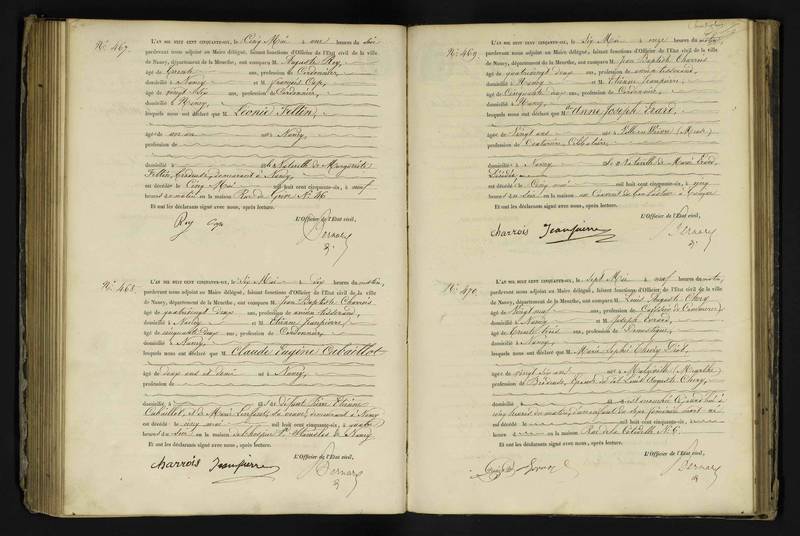 N° 467.
L'AN MIL HUIT CENT CINQUANTE-SIX, le Cinq Mai à une heures du soir
pardevant nous adjoint au Maire délégué, faisant fonctions d'Officier de l'Etat civil de la ville
de Nancy, département de la Meurthe, ont comparu M. Auguste Roy,
âgé de trente ans, profession de Cordonnier,
domicilié à Nancy et M. François
âgé de vingt ans, profession de Cordonnier,
domicilié à Nancy,
lesquels nous ont déclaré que M. Léonie Fellin,
âgé de un an né à Nancy,
profession de
domicilié à Naturelle de Marguerite
Fellin, demeurant à Nancy,
est décédé le Cinq Mai mil huit cent cinquante-six, à neuf
heures du matin en la maison Rue de Grève N° 46
Et ont les déclarants signé avec nous, après lecture.
L'Officier de l'Etat civil,
Roy
Bernard
N° 468.
L'AN MIL HUIT CENT CINQUANTE-SIX, le Six Mai à dix heures du matin,
pardevant nous adjoint au Maire délégué, faisant fonctions d'Officier de l'Etat civil de la ville
de Nancy, département de la Meurthe, ont comparu M. Jean Baptiste Charrois
âgé de quatrevingt deux ans, profession de ancien tisserand,
domicilié à Nancy et M. Etienne Jeanpierre,
âgé de cinquante deux ans, profession de Cordonnier,
domicilié à Nancy,
lesquels nous ont déclaré que M. Claude Eugène Cabaillot
âgé de deux ans et demi né à Nancy,
profession de
domicilié à fils de défunt Pierre Etienne
Cabaillot, et de Marie sa veuve, demeurant à Nancy
est décédé le cinq mai mil huit cent cinquante-six, à quatre
heures du soir en la maison de l'hospice St Stanislas de Nancy
Et ont les déclarants signé avec nous, après lecture.
L'Officier de l'Etat civil,
charrois Jeanpierre
Bernard
N° 469.
L'AN MIL HUIT CENT CINQUANTE-SIX, le Six Mai à onze heures du matin,
pardevant nous adjoint au Maire délégué, faisant fonctions d'Officier de l'Etat civil de la ville
de Nancy, département de la Meurthe, ont comparu M. Jean Baptiste Charrois
âgé de quatrevingt deux ans, profession de ancien tisserand,
domicilié à Nancy et M. Etienne Jeanpierre,
âgé de Cinquante deux ans, profession de Cordonnier,
domicilié à Nancy,
lesquels nous ont déclaré que M. Anne Joseph Erard,
âgé de Vingt ans né à
profession de Couturière, Célibataire
domicilié à Nancy Naturelle de Marie Erard,
est décédé le Cinq mai mil huit cent cinquante-six, à cinq
heures du soir en la maison
Et ont les déclarants signé avec nous, après lecture.
L'Officier de l'Etat civil,
charrois Jeanpierre
Bernard
N° 470.
L'AN MIL HUIT CENT CINQUANTE-SIX, le Sept Mai à neuf heures du matin,
pardevant nous adjoint au Maire délégué, faisant fonctions d'Officier de l'Etat civil de la ville
de Nancy, département de la Meurthe, ont comparu M. Louis Auguste
âgé de Vingt neuf ans, profession de
domicilié à Nancy et M. Joseph
âgé de Trente trois ans, profession de Domestique,
domicilié à Nancy,
lesquels nous ont déclaré que M. Marie Sophie
âgée de vingt six ans née à (Meurthe)
profession de Brodeuse, Epouse de Louis Auguste
domicilié à est accouchée
cinq heures du matin, d'un enfant du sexe féminin mort né
est décédé le mil huit cent cinquante-six,
heures d en la maison Rue de la Citadelle N° 6.
Et ont les déclarants signé avec nous, après lecture.
L'Officier de l'Etat civil,
Bernard